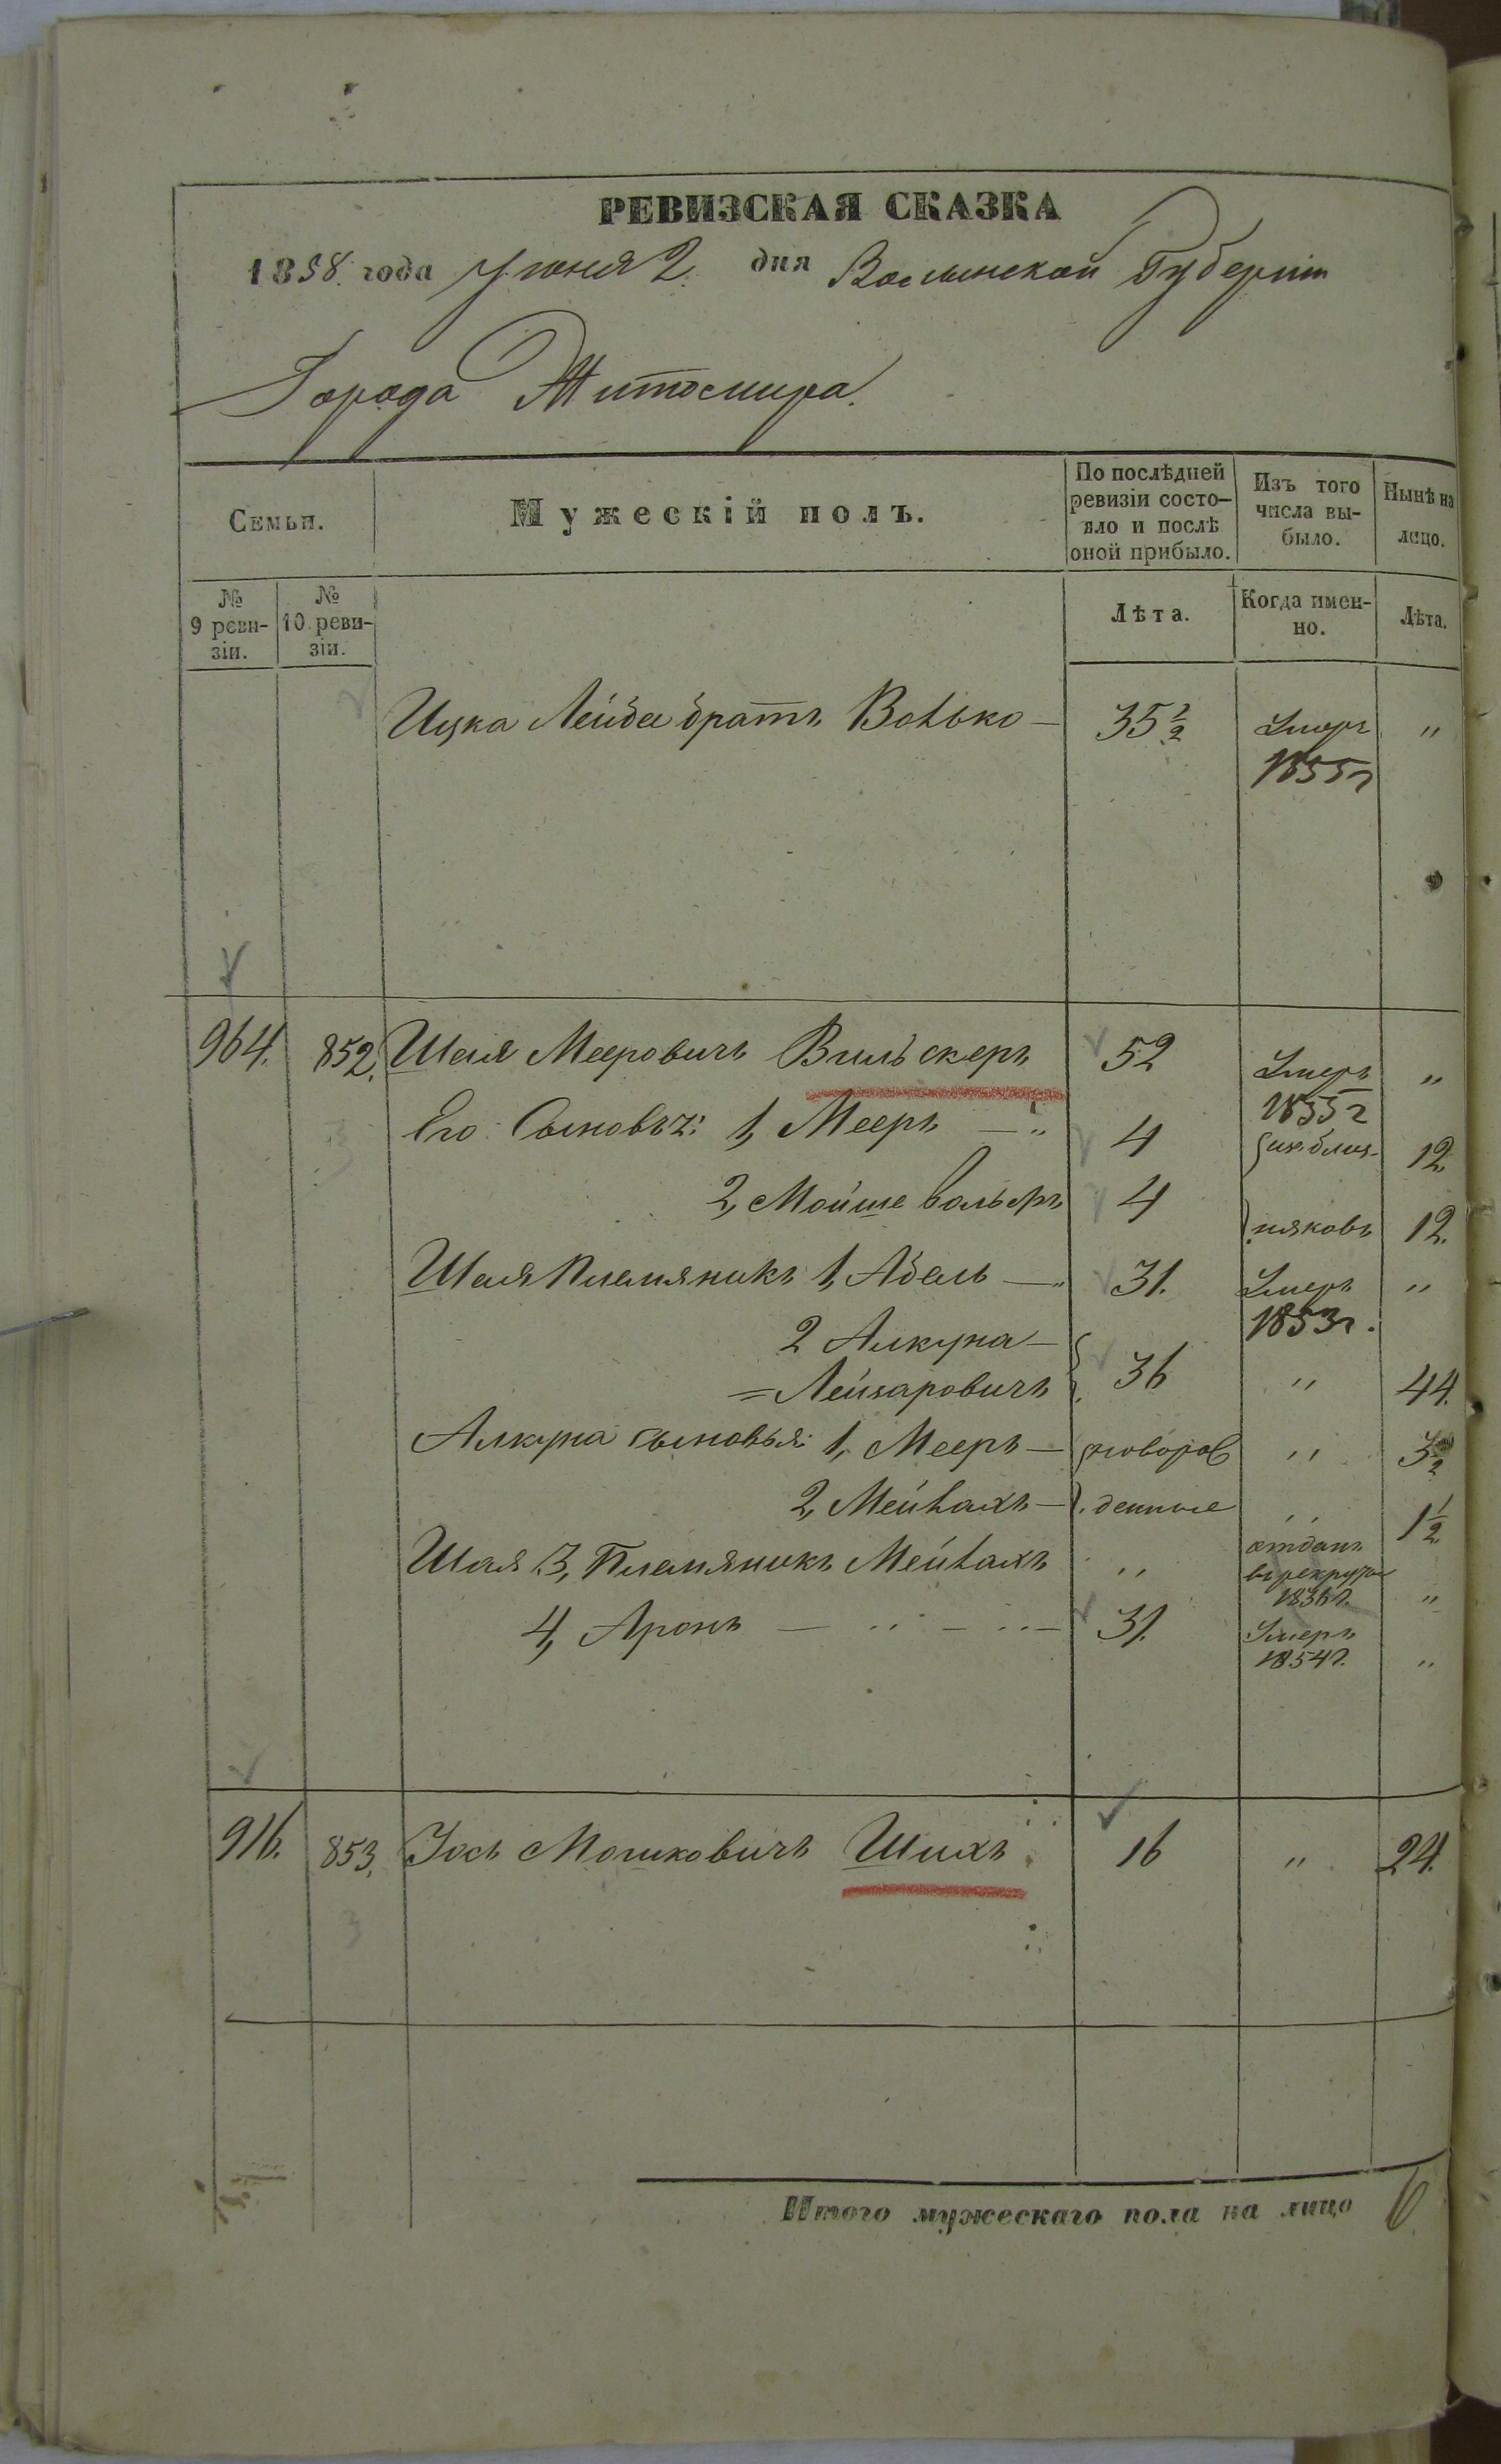 РЕВИЗСКАЯ СКАЗКА
1858. года Июня 2. дня Волынской Губерніи
Города Житомира.
Семьи.
Мужескій полъ.
По послѣдней ревизіи состо-
яло и послѣ оной прибыло.
Изъ того числа вы-
было.
Нынѣ на лицо.
№ 9 реви-
зіи.
№ 10 реви-
зіи.
Лѣта.
Когда имен-
но.
Лѣта.
Ицка Лейба братъ Волько — 35 1/2 Умеръ 1855 г "
964. 852. Шая Мееровичъ Вильскеръ 52 Умеръ 1855 г "
Его Сыновья: 1, Мееръ — " 4 12.
2, Мойше 4 12.
Шая Племяникъ 1, Абель — " 31. Умеръ 1853 г. "
2 Алкуна —
= Лейзаровичъ 36 " 44.
Алкуна сыновья: 1, Мееръ — новорож "
2, Мейлахъ — денные " 1 1/2
Шая 3, Племяникъ Мейлахъ " отданъ
в рекруты "
4, Аронъ — " — " — 31. Умеръ
1854 г. "
916. 853. Іось Мошковичъ Шихъ 16 " 24.
Итого мужескаго пола на лицо 6